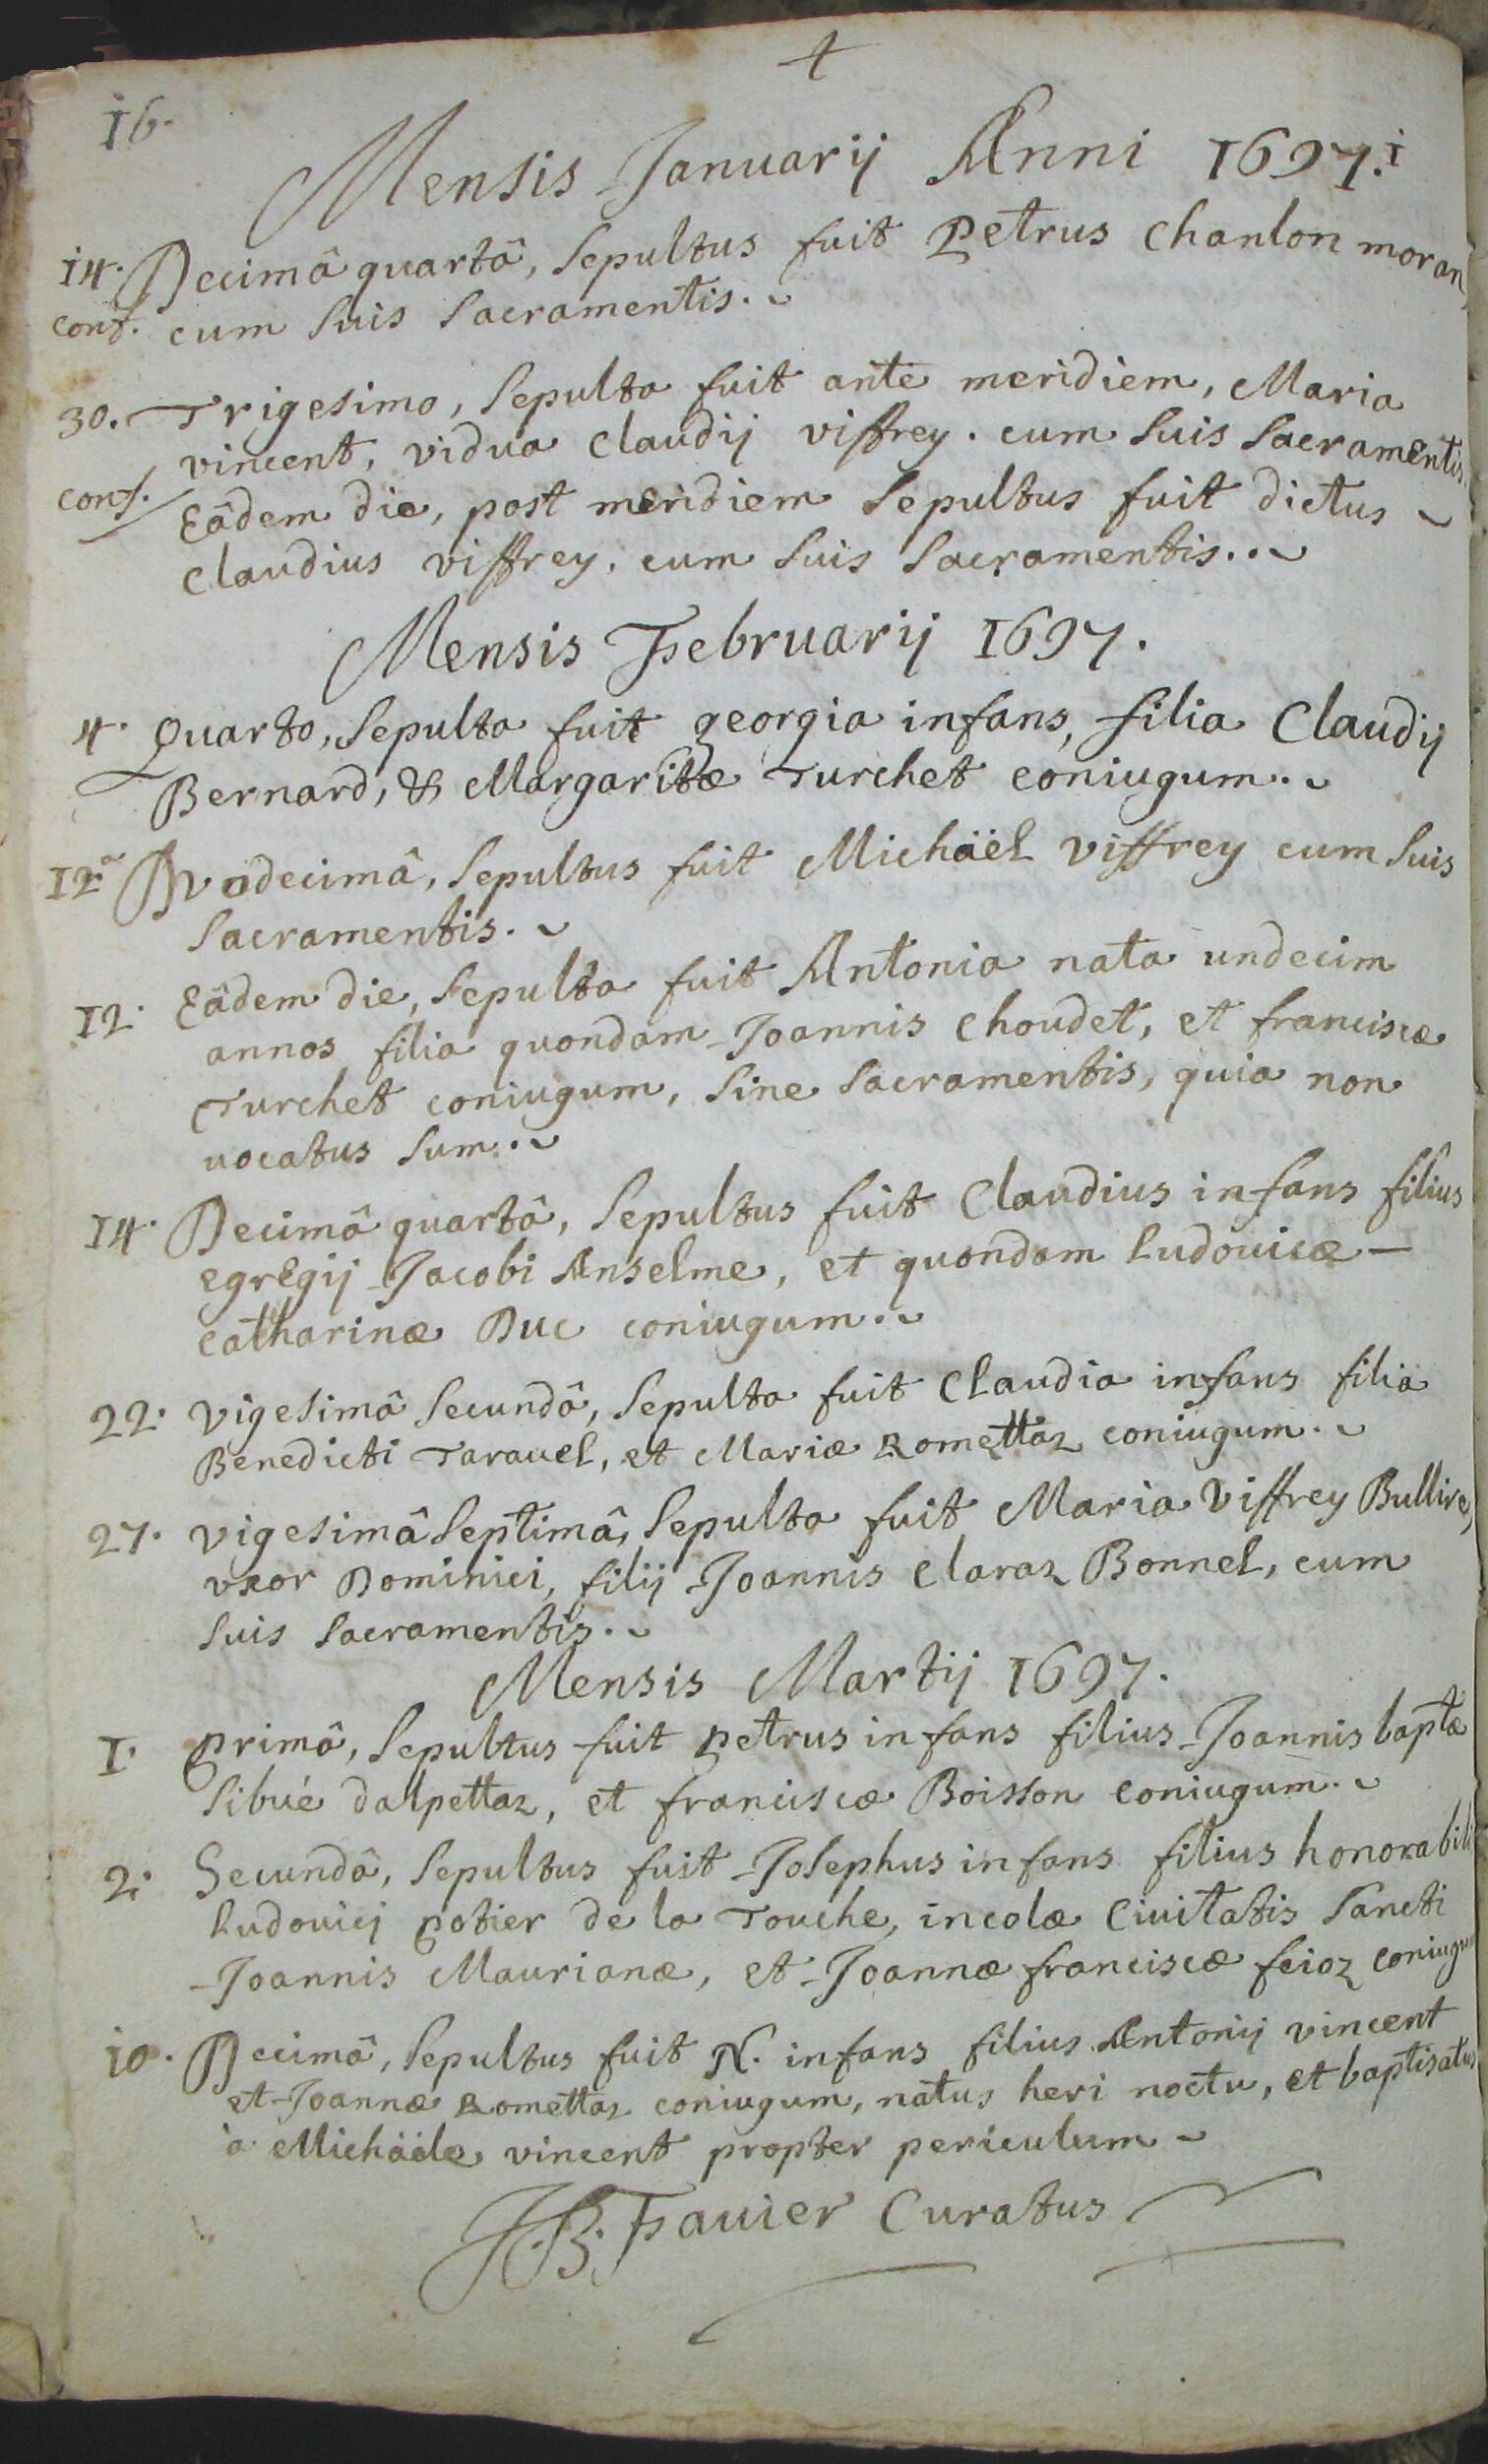 +
16.
Mensis Januarij Anni 1697.i
14. Decimâ quartâ, sepultus fuit Petrus Chanlon moran,
conf. cum suis sacramentis.
30. Trigesimo, sepulta fuit ante meridiem, Maria
vincent, vidua Claudij viffrey. cum suis sacramentis.
conf. Eâdem die, post meridiem sepultus fuit dictus
Claudius viffrey, cum suis sacramentis.
Mensis Februarij 1697.
4. Quarto, sepulta fuit georgia infans, filia Claudij
Bernard, & Margaritæ Turchet coniugum.
12a Duodecimâ, sepultus fuit Michäel viffrey cum suis
sacramentis.
12. Eâdem die, sepulta fuit Antonia nata undecim
annos filia quondam Joannis Choudet, et franciscæ
Turchet coniugum, sine sacramentis, quia non
uocatus sum.
14. Decimâ quartâ, sepultus fuit Claudius infans filius
egregij Jacobi Anselme, et quondam Ludouicæ
Catharinæ Duc coniugum.
22. vigesimâ secundâ, sepulta fuit Claudia infans filia
Benedicti Tarauel, et Mariæ Romettaz coniugum.
27. vigesimâ septimâ, sepulta fuit Maria viffrey Bullire,
vxor Dominici, filij Joannis Claraz Bonnel, cum
suis sacramentis.
Mensis Martij 1697.
1. Primâ, sepultus fuit Petrus infans filius Joannis baptæ
Sibué dalpettaz, et franciscæ Boisson coniugum.
2. Secundâ, sepultus fuit Josephus infans filius honorabili
Ludouicj Potier de la Touche, incolæ Ciuitatis Sancti
Joannis Maurianæ, et Joannæ franciscæ feioz coniugum
10. Decimâ, sepultus fuit N. infans filius Antonij vincent
et Joannæ Romettaz coniugum, natus heri noctu, et baptisatus
à Michäele vincent propter periculum
JB. Fauier Curatus